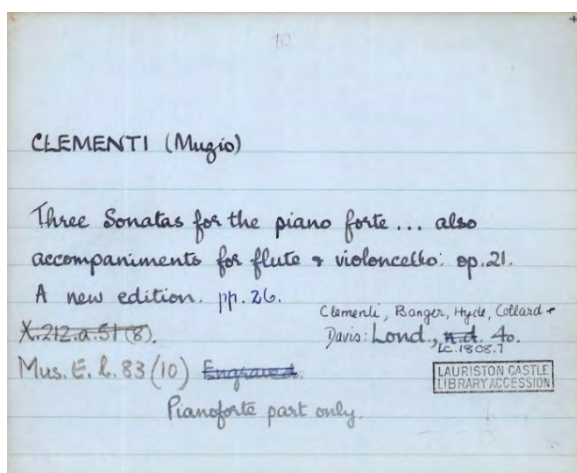 10
CLEMENTI (Muzio)
Three Sonatas for the piano forte... also
accompaniments for flute & violoncello: op.21.
A new edition. pp. 26.
Clementi, Banger, Hyde, Collard &
X.212.a.51(8).
Davis: Lond., n.d. 4o.
[c.1808.]
Mus. E. l. 83(10) Engraved.
LAURISTON CASTLE
LIBRARY ACCESSION
Pianoforte part only.